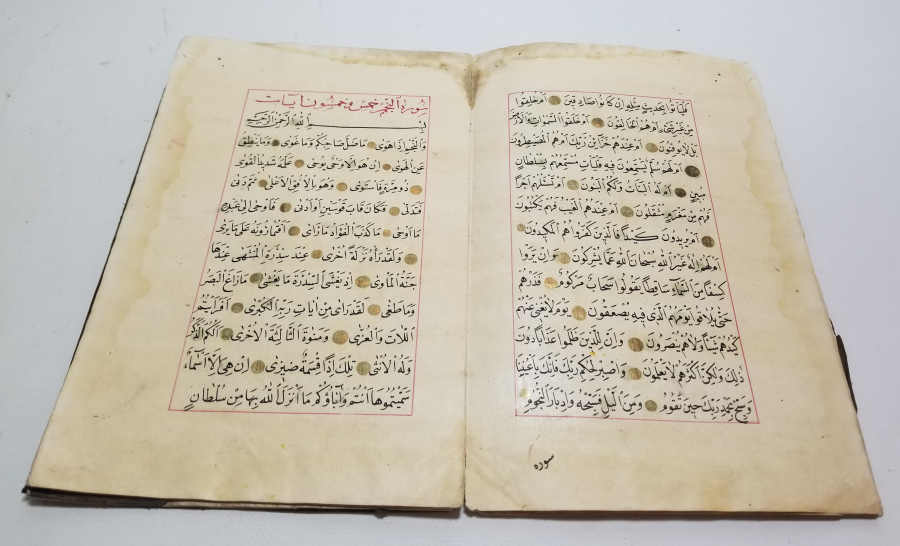 فَلْيَأْتُوا بِحَدِيثٍ مِثْلِهِ اِنْ كَانُوا صَادِقِينَ اَمْ خُلِقُوا
مِنْ غَيْرِ شَيْءٍ اَمْ هُمُ الْخَالِقُونَ اَمْ خَلَقُوا السَّمٰوَاتِ وَالْاَرْضَ
بَلْ لَا يُوقِنُونَ اَمْ عِنْدَهُمْ خَزَائِنُ رَبِّكَ اَمْ هُمُ الْمُصَيْطِرُونَ
اَمْ لَهُمْ سُلَّمٌ يَسْتَمِعُونَ فِيهِ فَلْيَأْتِ مُسْتَمِعُهُمْ بِسُلْطَانٍ
مُبِينٍ اَمْ لَهُ الْبَنَاتُ وَلَكُمُ الْبَنُونَ اَمْ تَسْئَلُهُمْ اَجْرًا
فَهُمْ مِنْ مَغْرَمٍ مُثْقَلُونَ اَمْ عِنْدَهُمُ الْغَيْبُ فَهُمْ يَكْتُبُونَ
اَمْ يُرِيدُونَ كَيْدًا فَالَّذِينَ كَفَرُوا هُمُ الْمَكِيدُونَ
اَمْ لَهُمْ اِلٰهٌ غَيْرُ اللهِ سُبْحَانَ اللهِ عَمَّا يُشْرِكُونَ وَاِنْ يَرَوْا
كِسْفًا مِنَ السَّمَاءِ سَاقِطًا يَقُولُوا سَحَابٌ مَرْكُومٌ فَذَرْهُمْ
حَتّٰى يُلَاقُوا يَوْمَهُمُ الَّذِي فِيهِ يُصْعَقُونَ يَوْمَ لَا يُغْنِي عَنْهُمْ
كَيْدُهُمْ شَيْئًا وَلَا هُمْ يُنْصَرُونَ وَاِنَّ لِلَّذِينَ ظَلَمُوا عَذَابًا دُونَ
ذٰلِكَ وَلٰكِنَّ اَكْثَرَهُمْ لَا يَعْلَمُونَ وَاصْبِرْ لِحُكْمِ رَبِّكَ فَاِنَّكَ بِاَعْيُنِنَا
وَسَبِّحْ بِحَمْدِ رَبِّكَ حِينَ تَقُومُ وَمِنَ الَّيْلِ فَسَبِّحْهُ وَاِدْبَارَ النُّجُومِ
سوره
سورة النجم خمس وخمسون ايات
بسم الله الرحمن الرحيم
وَالنَّجْمِ اِذَا هَوٰى مَا ضَلَّ صَاحِبُكُمْ وَمَا غَوٰى وَمَا يَنْطِقُ
عَنِ الْهَوٰى اِنْ هُوَ اِلَّا وَحْيٌ يُوحٰى عَلَّمَهُ شَدِيدُ الْقُوٰى
ذُو مِرَّةٍ فَاسْتَوٰى وَهُوَ بِالْاُفُقِ الْاَعْلٰى ثُمَّ دَنٰى
فَتَدَلّٰى فَكَانَ قَابَ قَوْسَيْنِ اَوْ اَدْنٰى فَاَوْحٰى اِلٰى عَبْدِهِ
مَا اَوْحٰى مَا كَذَبَ الْفُؤَادُ مَا رَاٰى اَفَتُمَارُونَهُ عَلٰى مَا يَرٰى
وَلَقَدْ رَاٰهُ نَزْلَةً اُخْرٰى عِنْدَ سِدْرَةِ الْمُنْتَهٰى عِنْدَهَا
جَنَّةُ الْمَأْوٰى اِذْ يَغْشَى السِّدْرَةَ مَا يَغْشٰى مَا زَاغَ الْبَصَرُ
وَمَا طَغٰى لَقَدْ رَاٰى مِنْ اٰيَاتِ رَبِّهِ الْكُبْرٰى اَفَرَاَيْتُمُ
اللَّاتَ وَالْعُزّٰى وَمَنٰوةَ الثَّالِثَةَ الْاُخْرٰى اَلَكُمُ الذَّكَرُ
وَلَهُ الْاُنْثٰى تِلْكَ اِذًا قِسْمَةٌ ضِيزٰى اِنْ هِيَ اِلَّا اَسْمَاءٌ
سَمَّيْتُمُوهَا اَنْتُمْ وَاٰبَاؤُكُمْ مَا اَنْزَلَ اللهُ بِهَا مِنْ سُلْطَانٍ